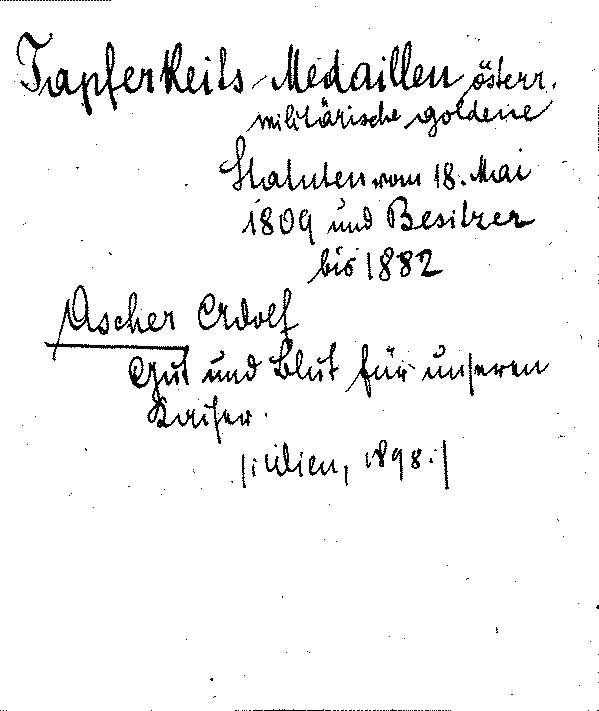 Tapferkeits-Medaillen österr.
militärische goldene
Statuten vom 18. Mai
1809 und Besitzer
bis 1882
Ascher Adolf
Gut und Blut für unseren
Kaiser.
/: Wien, 1898. /